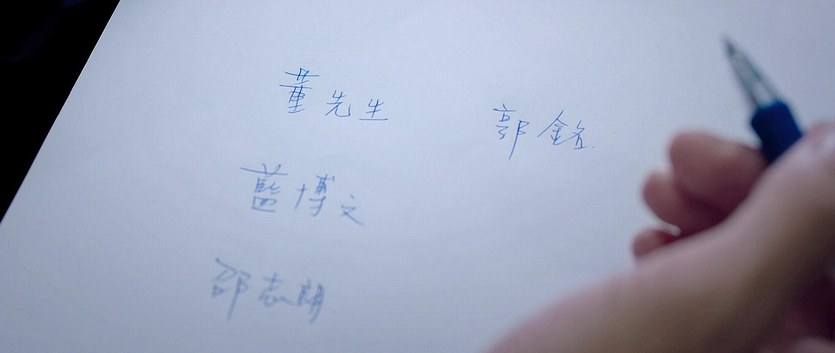 董先生
郭銘
藍博文
邵志朗